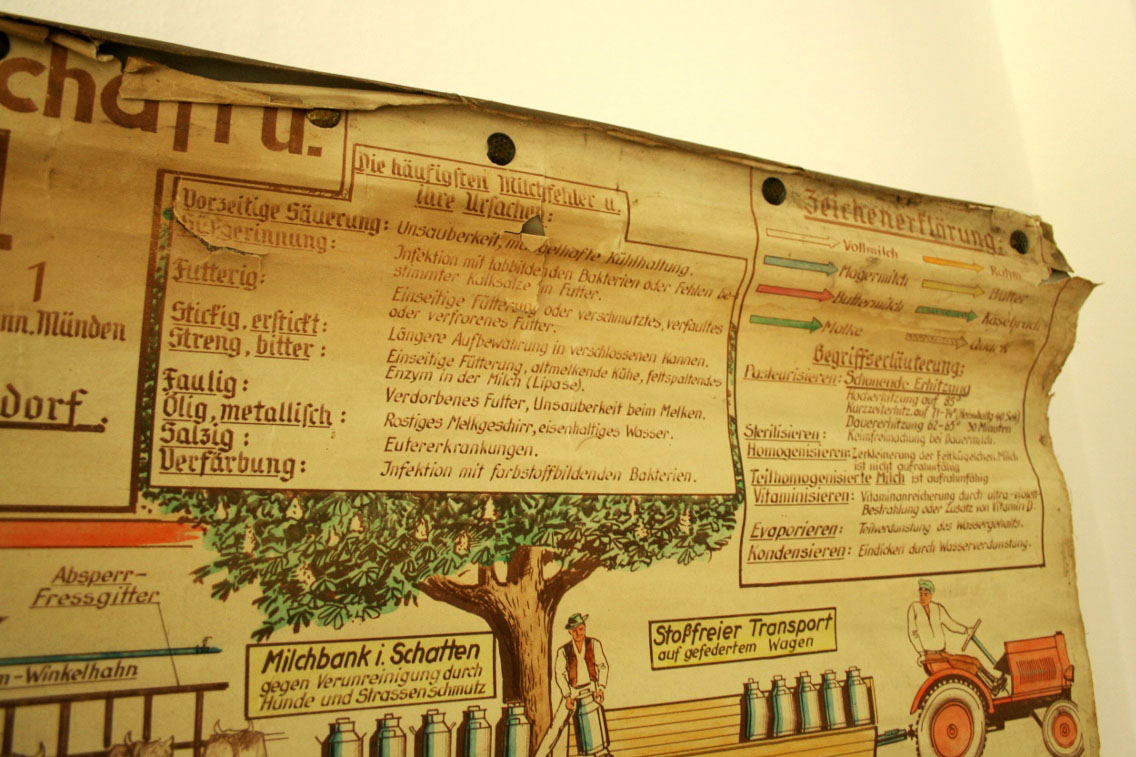 chaft u.
1
nn. Münden
dorf.
Die häufigsten Milchfehler u.
ihre Ursachen:
Vorzeitige Säuerung: Unsauberkeit, mangelhafte Kühlhaltung.
Süßgerinnung: Infektion mit labbildenden Bakterien oder Fehlen be-
stimmter Kalksalze im Futter.
Futterig: Einseitige Fütterung oder verschmutztes, verfaultes
oder verfrorenes Futter.
Stickig, erstickt: Längere Aufbewahrung in verschlossenen Kannen.
Streng, bitter: Einseitige Fütterung, altmelkende Kühe, fettspaltendes
Enzym in der Milch (Lipase).
Faulig: Verdorbenes Futter, Unsauberkeit beim Melken.
Ölig, metallisch: Rostiges Melkgeschirr, eisenhaltiges Wasser.
Salzig: Eutererkrankungen.
Verfärbung: Infektion mit farbstoffbildenden Bakterien.
Zeichenerklärung:
Vollmilch
Rahm
Magermilch
Butter
Buttermilch
Käsebruch
Molke
Quark
Begriffserläuterung:
Pasteurisieren: Schonende Erhitzung
Hocherhitzung auf 85°
Kurzzeiterhitz. auf 71-74° 40 Sek)
Dauererhitzung 62-65° 30 Minuten
Sterilisieren: Keimfreimachung bei Dauermilch.
Homogenisieren: Zerkleinerung der Fettkügelchen. Milch
ist nicht aufrahmfähig
Teilhomogenisierte Milch ist aufrahmfähig
Vitaminisieren: Vitaminanreicherung durch ultra-violett-
Bestrahlung oder Zusatz von Vitamin D.
Evaporieren: Teilverdunstung des Wassergehalts.
Kondensieren: Eindicken durch Wasserverdunstung.
Absperr-
Fressgitter
m-Winkelhahn
Milchbank i. Schatten
gegen Verunreinigung durch
Hunde und Strassenschmutz
Stoßfreier Transport
auf gefedertem Wagen